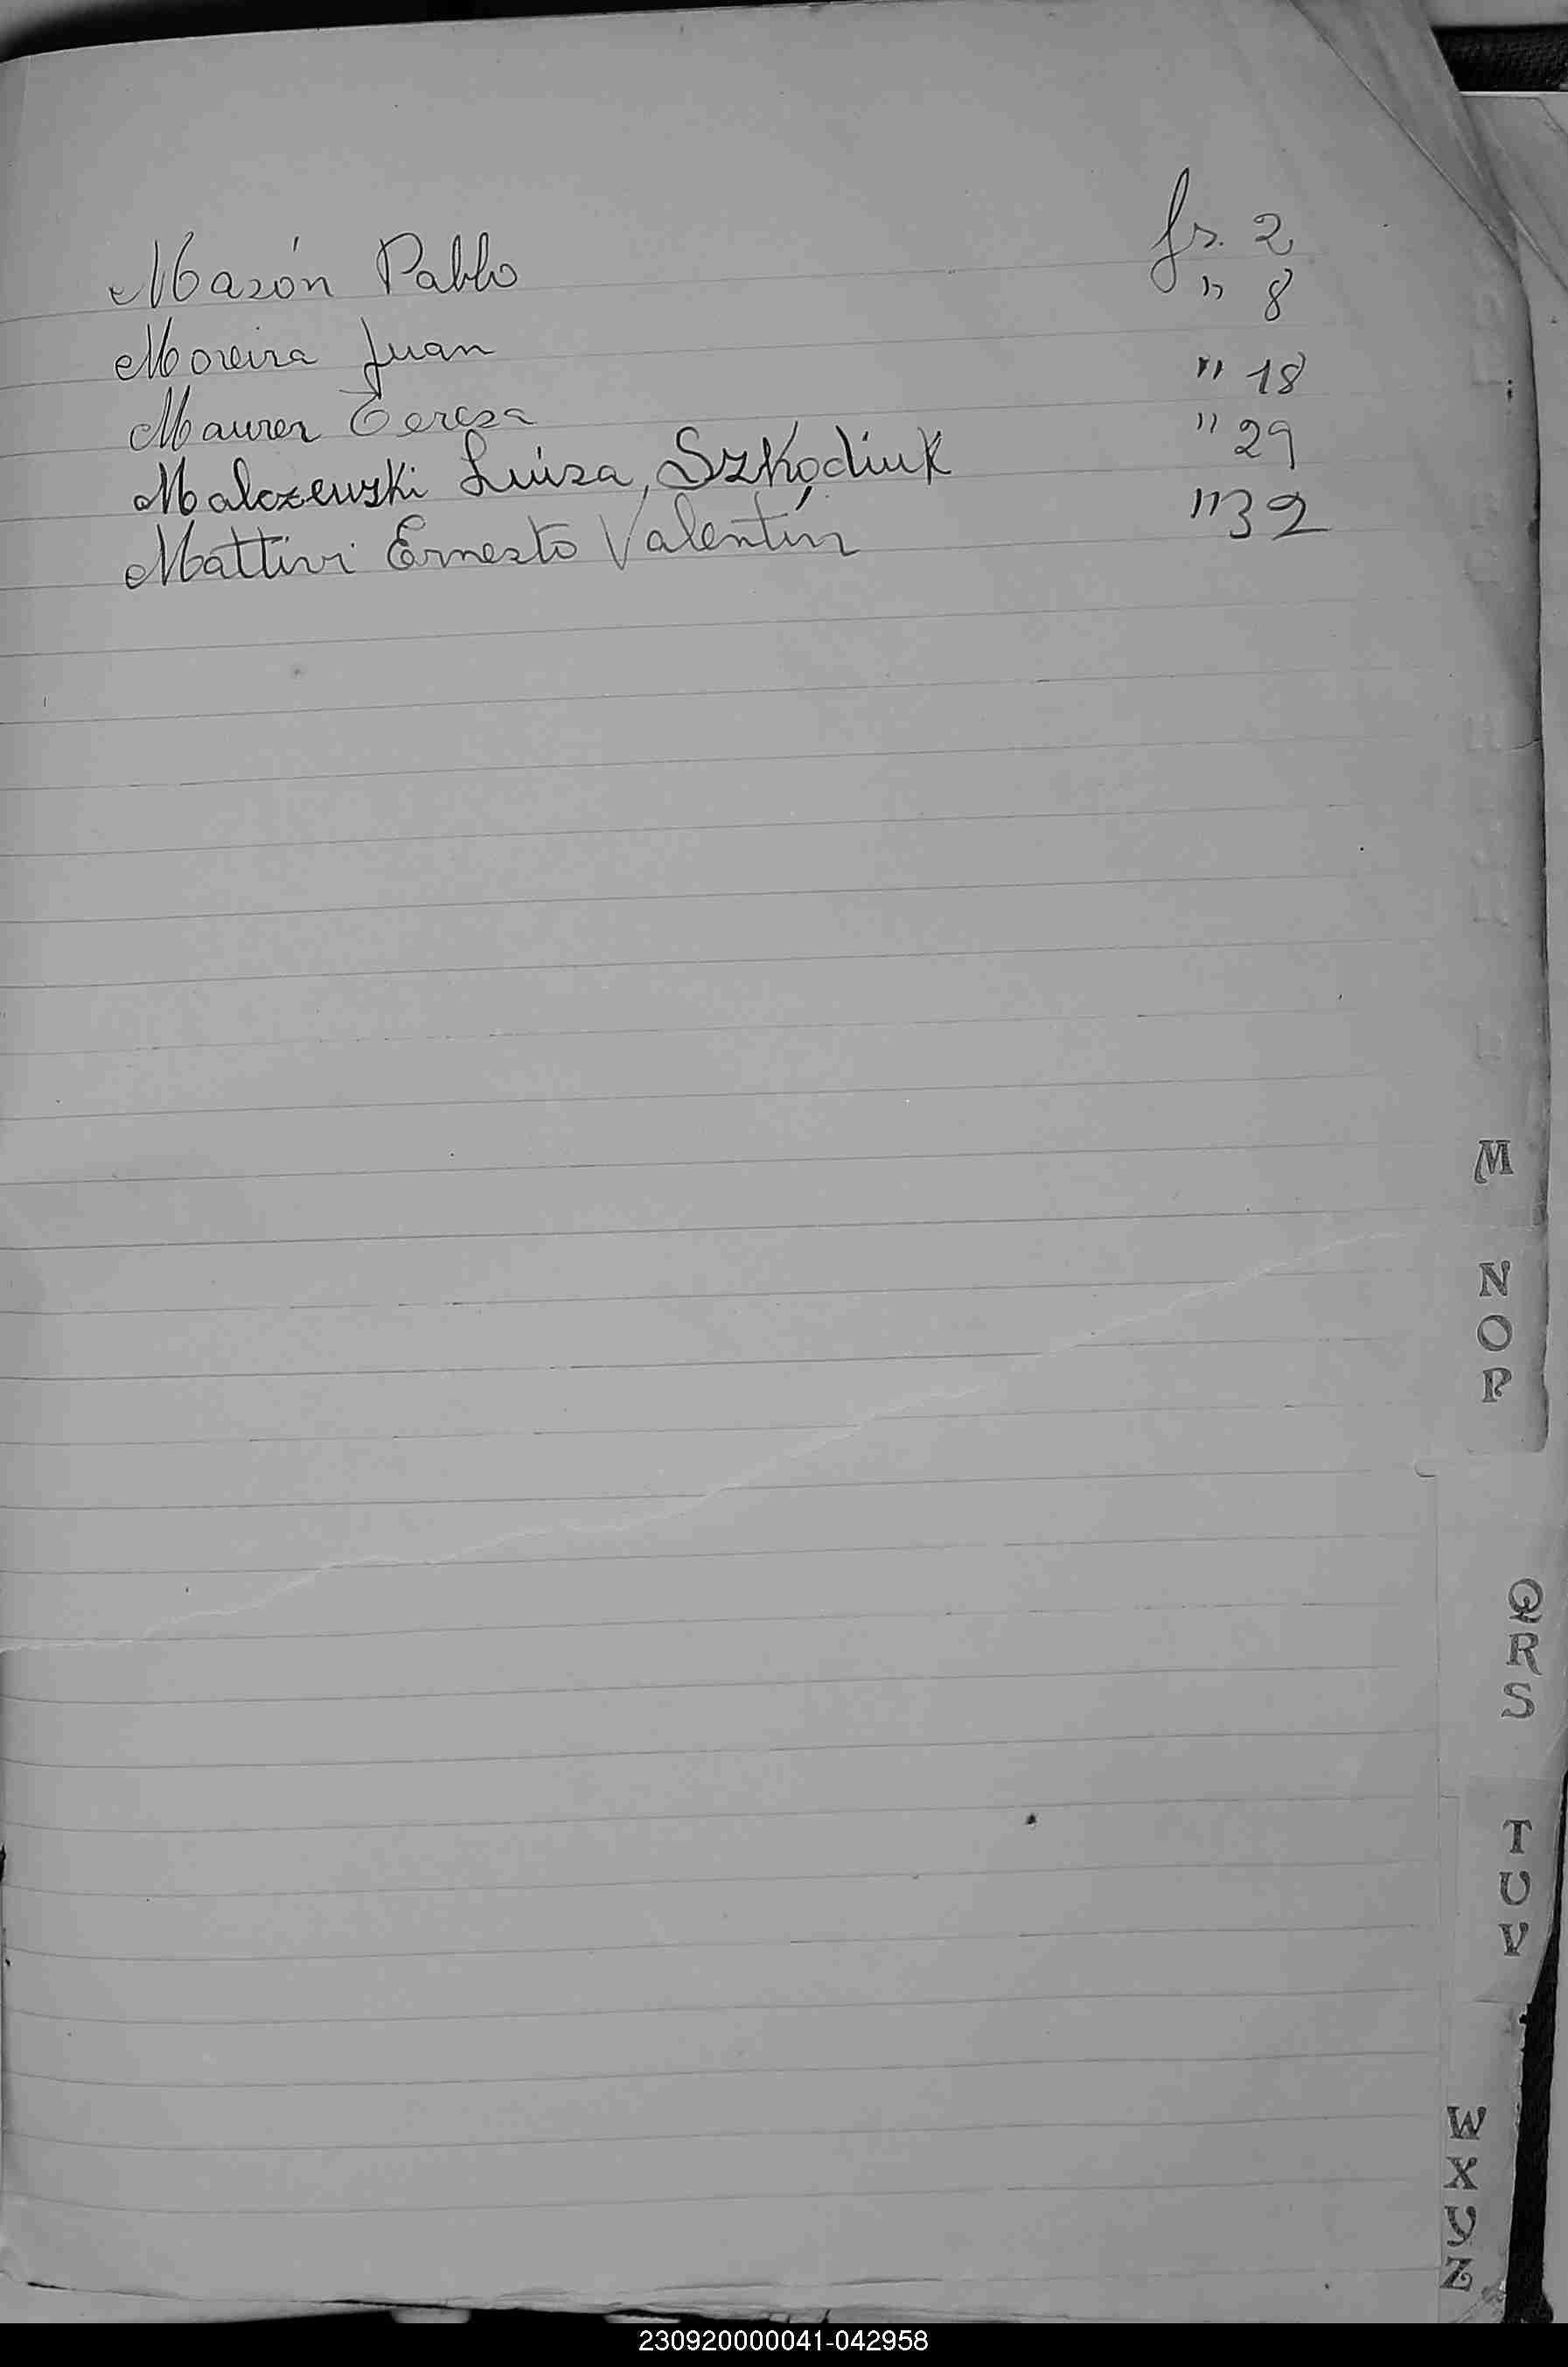 Mazón Pablo fs. 2
Moreira Juan " 8
Maurer Teresa " 18
Malczewski Luisa, Szkodiuk " 29
Mattivi Ernesto Valentín " 32
M
N
O
P
Q
R
S
T
U
V
W
X
Y
Z
230920000041-042958